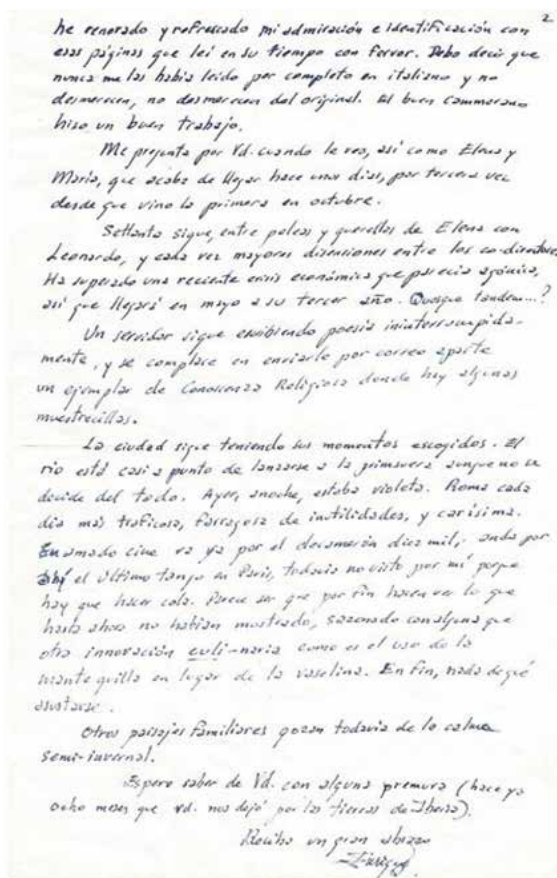 2
he renovado y refrescado mi admiración e identificación con
esas páginas que leí en su tiempo con fervor. Debo decir que
nunca me las había leído por completo en italiano y no
desmerecen, no desmerecen del original. El buen Cammarano
hizo un buen trabajo.
Me pregunta por Vd. cuando le veo, así como Elena y
María, que acaba de llegar hace unos días, por tercera vez
desde que vino la primera en octubre.
Settanta sigue, entre peleas y querellas de Elena con
Leonardo, y cada vez mayores disensiones entre los co-directores.
Ha superado una reciente crisis económica que parecía agónica,
así que llegará en mayo a su tercer año. Quosque tandem...?
Un servidor sigue escribiendo poesía ininterrumpida-
mente, y se complace en enviarle por correo aparte
un ejemplar de Conoscenza Religiosa donde hay algunas
muestrecillas.
La ciudad sigue teniendo sus momentos escogidos. El
río está casi a punto de lanzarse a la primavera aunque no se
decide del todo. Ayer, anoche, estaba violeta. Roma cada
día más traficosa, farragosa de inutilidades, y carísima.
amado cine va ya por el decamerón diez mil; anda por
ahí el último tango en París, todavía no visto por mí porque
hay que hacer cola. Parece ser que por fin hacen ver lo que
hasta ahora no habían mostrado, sazonado con alguna que
otra innovación culi-naria como es el uso de la
mantequilla en lugar de la vaselina. En fin, nada de qué
asustarse.
Otros paisajes familiares gozan todavía de la calma
semi-invernal.
Espero saber de Vd. con alguna premura (hace ya
ocho meses que vd. nos dejó por las tierras de Iberia).
Reciba un gran abrazo
Enrique